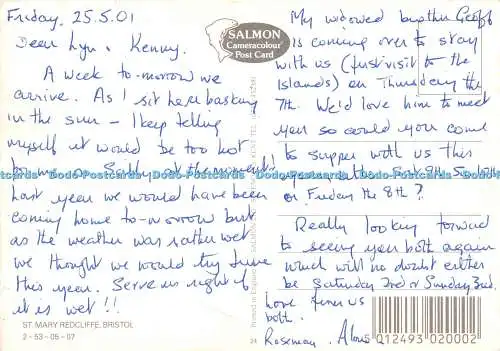 Friday, 25.5.01
Dear Lyn & Kenny.
A week to-morrow we
arrive. As I sit here basking
in the sun – I keep telling
myself it would be too hot
for me on Scilly at the moment!
Last year we would have been
coming home to-morrow but
as the weather was rather wet
we thought we would try June
this year. Serve us right if
it is wet!!
ST. MARY REDCLIFFE, BRISTOL
2-53-05-07
SALMON
Cameracolour
Post Card
My widowed brother Geoff
is coming over to stay
with us (first visit to the
Islands) on Thursday the
7th. We'd love him to meet
you so could you come
to supper with us this
or Friday the 8th?
Really looking forward
to seeing you both again
which will no doubt either
be Saturday 2nd or Sunday 3rd.
Love from us
both.
Rosemary & Alan
5 012493 020002
Dodo-Postcards Dodo-Postcards Dodo-Postcards Dodo-Postcards